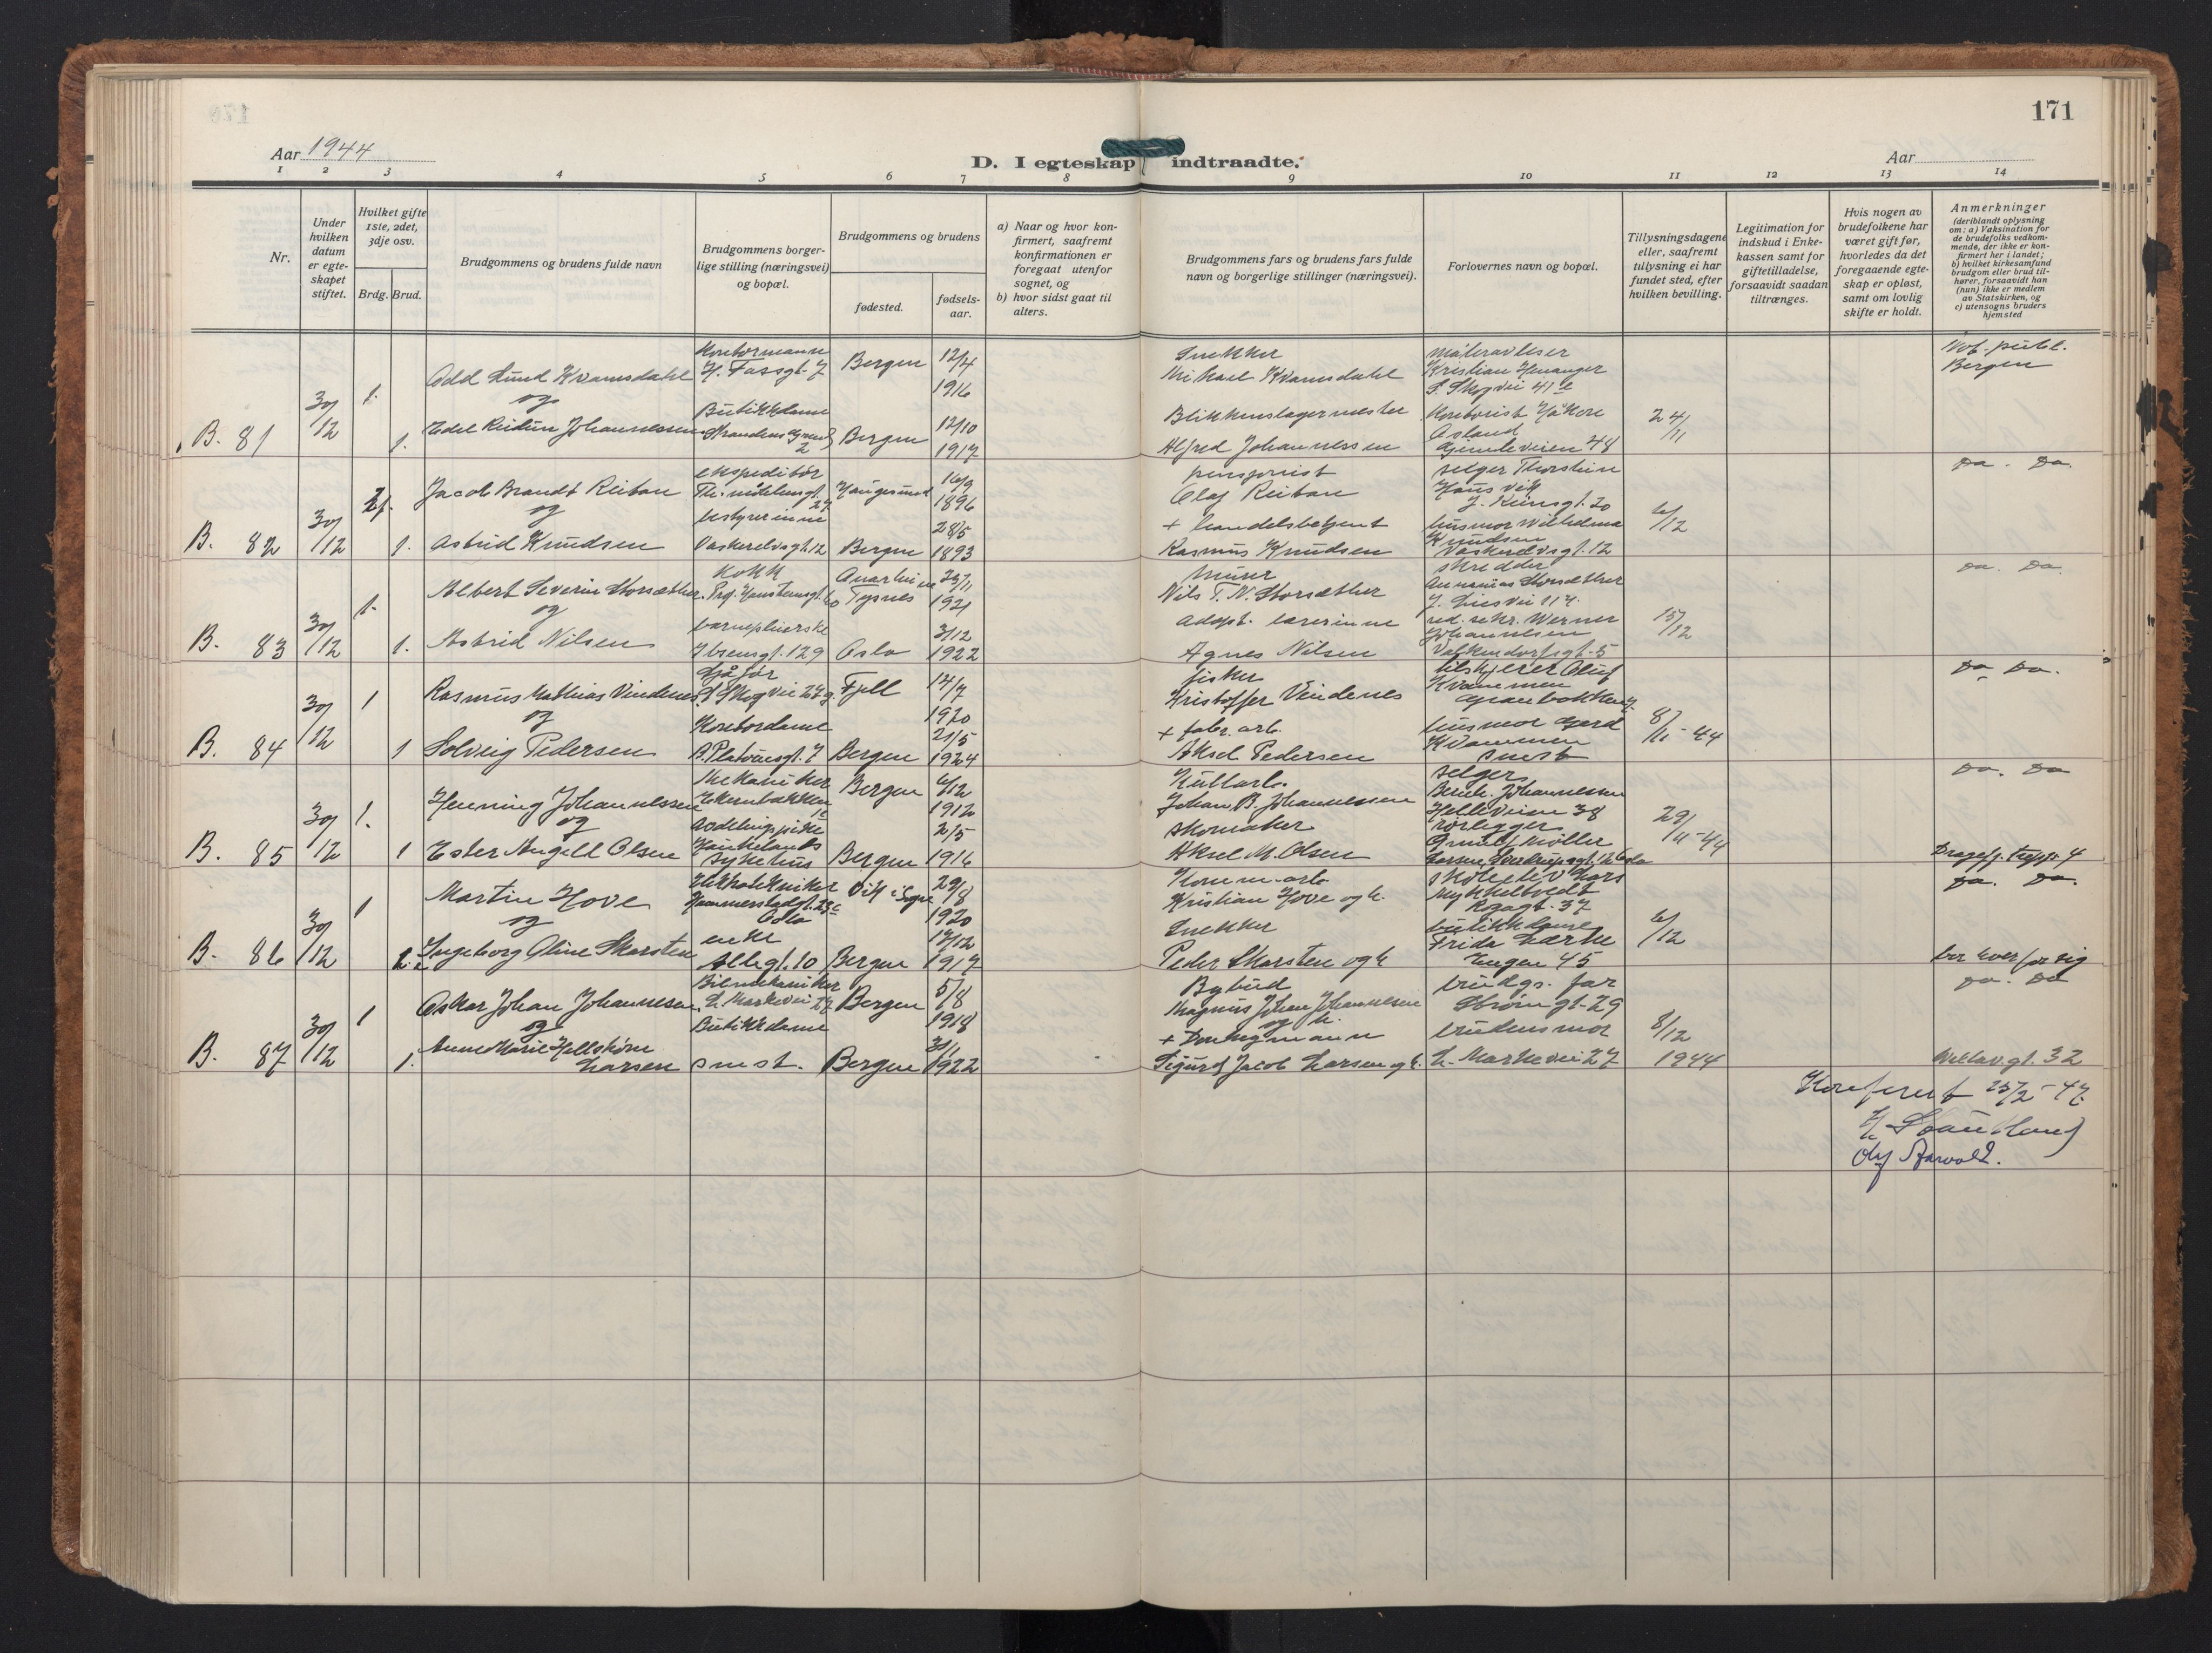 171
Aar 1944
D. I egteskap indtraadte.
Aar
1 2 3 4 5 6 7 8 9 10 11 12 13 14
Nr.
Under hvilken datum er egte-skapet stiftet.
Hvilket gifte 1ste, 2det, 3dje osv.
Brdg. Brud.
Brudgommens og brudens fulde navn
Brudgommens borger-
lige stilling (næringsvei)
og bopæl.
Brudgommens og brudens
fødested.
fødsels-
aar.
a) Naar og hvor kon-
firmert, saafremt
konfirmationen er
foregaat utenfor
sognet, og
b) hvor sidst gaat til
alters.
Brudgommens fars og brudens fars fulde
navn og borgerlige stillinger (næringsvei).
Forlovernes navn og bopæl.
Tillysningsdagene
eller, saafremt
tillysning ei har
fundet sted, efter
hvilken bevilling.
Legitimation for
indskud i Enke-
kassen samt for
giftetilladelse,
forsaavidt saadan
tiltrænges.
Hvis nogen av
brudefolkene har
været gift før,
hvorledes da det
foregaaende egte-
skap er opløst,
samt om lovlig
skifte er holdt.
Anmerkninger
(deriblandt oplysning
om: a) Vaksination for
de brudefolks vedkom-
mende, der ikke er kon-
firmert her i landet;
b) hvilket kirkesamfund
brudgom eller brud til-
hører, forsaavidt han
(hun) ikke er medlem
av Statskirken, og
c) utensogns bruders
hjemsted
B. 81
30/12
1.
1.
Odd Lund Kvamsdahl
og
Edel Reidun Johannessen
Kontormann
H. Fassgt. 7
Butikkdame
2
Bergen
12/4
1916
Bergen
12/10
1917
Snekker
Mikael Kvamsdahl
Blikkenslagermester
Alfred Johannessen
Måleravleser
Kristian Henanger
S. Skogvei 41 e
Kontorist Håkon
Åsland
48
24/11
Not. publ.
Bergen
B. 82
30/12
2
1.
Jacob Brandt Reitan
og
Astrid Knudsen
ekspeditør
27
bestyrerinne
Vaskerelvsgt. 12
Haugesund
16/9
1896
Bergen
28/5
1893
pensjonist
Olaf Reitan
+ handelsbetjent
Rasmus Knudsen
selger Thorstein
Hausvik
20
husmor Wilhelma
Knudsen
Vaskerelvsgt. 12
6/12
Do. Do.
B. 83
30/12
1.
1.
Albert Severin Storsæther
og
Astrid Nilsen
Kokk
barnepleierske
Ibsensgt. 129
Tysnes
23/11
1921
Oslo
3/12
1922
Murer
Nils T. N. Storsæther
Adopt. lærerinne
Agnes Nilsen
skredder
Storsæther
red. sekr. Werner
Johannesen
Valkendorfsgt. 5
13/12
Do. Do.
B. 84
30/12
1
1
Rasmus Mathias Vindenes
og
Solveig Pedersen
Sjåfør
S. Skogvei 27 g
Kontordame
Fjell
17/7
1920
Bergen
21/5
1924
fisker
Kristoffer Vindenes
+ fabr. arb.
Aksel Pedersen
Oluf
Kvammen
husmor Gerd
Kvammen
smst
8/11-44
Do Do.
B. 85
30/12
1.
1
Henning Johannessen
og
Ester Angell Olsen
Mekaniker
Haukelands
sykehus
Bergen
6/12
1912
Bergen
2/5
1916
Johan B. Johannessen
skomaker
Aksel M. Olsen
selger
Bernh. Johannessen
Helleveien 38
rørlegger
29/11-44
Do. Do
B. 86
30/12
1
2.
Martin Hove
og
Ingeborg Oline Skarsten
Elektrotekniker
Hammerstadgt. 23 c
Oslo
enke
Allegt. 10
Vik i Sogn
29/8
1920
Bergen
17/12
1917
Komm. arb
Kristian Hove og h.
Snekker
Peder Skarsten og h
Lars
Myhkeltvedt
37
butikkdame
Frida Lærke
Engen 45
6/12
4
Do. Do.
B. 87
30/12
1
1.
Oskar Johan Johannessen
og
Anne Marie Hellstrøm
Larsen
Bilmekaniker
L. Markevei 27
Butikkdame
smst.
Bergen
5/8
1918
Bergen
1922
Bybud
Magnus Johan Johannesen
og h.
Sigurd Jacob Larsen og h.
brudgs. far
Strømgt. 29
brudens mor
L. Markevei 27
8/12
1944
bor hver for sig
Do. Do
32
Konferert 25/2-47